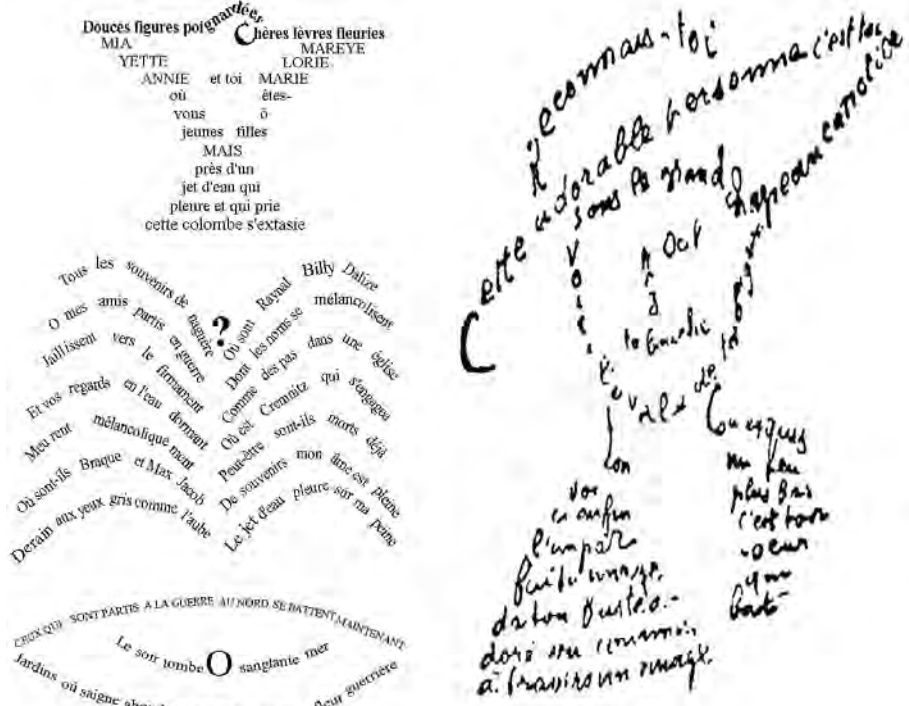 Douces figures poignardées
Chères lèvres fleuries
MIA MAREYE
YETTE LORIE
ANNIE et toi MARIE
où êtes-
vous ô
jeunes filles
MAIS
près d'un
jet d'eau qui
pleure et qui prie
cette colombe s'extasie
?
Tous les souvenirs de naguère
O mes amis partis en guerre
Jaillissent vers le firmament
Et vos regards en l'eau dormant
Meurent mélancoliquement
Où sont-ils Braque et Max Jacob
Derain aux yeux gris comme l'aube
Où sont Raynal Billy Dalize
Dont les noms se mélancolisent
Comme des pas dans une église
Où est Cremnitz qui s'engagea
Peut-être sont-ils morts déjà
De souvenirs mon âme est pleine
Le jet d'eau pleure sur ma peine
CEUX QUI SONT PARTIS A LA GUERRE AU NORD SE BATTENT MAINTENANT
Le soir tombe O sanglante mer
Jardins où saigne fleur guerrière
Reconnais-toi
Cette adorable personne c'est toi
Sous le grand chapeau canotier
Oeil
Nez
ta bouche
Voici l'ovale de ta figure
Ton
Cou exquis
Voi
ci enfin
l'impar
faite image
de ton buste a-
doré vu comme
à travers un nuage
un peu
plus bas
c'est ton
coeur
qui
bat